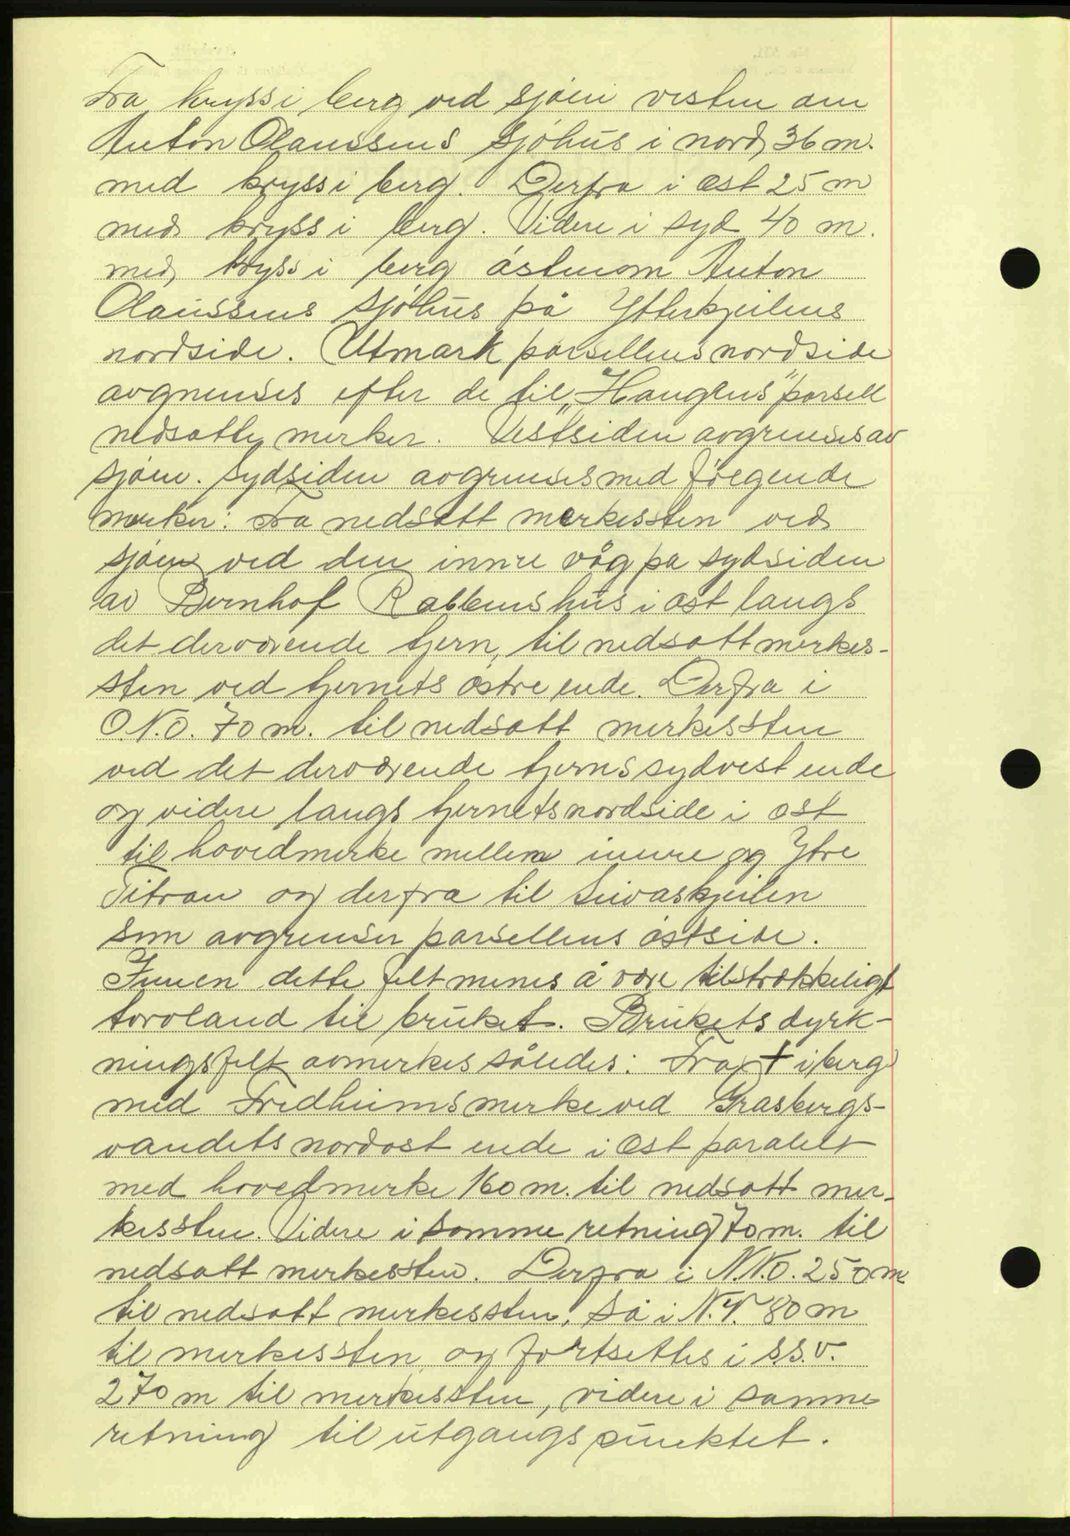 Fra kryss i berg ved sjøen vesten om
Anton Olaussens sjøhus i nord, 36 m.
med kryss i berg. Derfra i øst 25 m
med kryss i berg. Videre i syd 40 m.
med kryss i berg østenom Anton
Olaussens sjøhus på Ytterkjeilens
nordside. Utmark parsellens nordside
avgrenses efter de til „Haugens" parsell
nedsatte merker. Vestsiden avgrenses av
sjøen. Sydsiden avgrenses med følgende
merker: Fra nedsatt merkessten ved
sjøen ved den innre våg på sydsiden
av Bernhof Rabbens hus i øst langs
det derværende tjern, til nedsatt merkes-
sten ved tjernets østre ende. Derfra i
O.N.O. 70 m. til nedsatt merkessten
ved det derværende tjerns sydvest ende
og videre langs tjernets nordside i øst
til hovedmerke mellem innre og Ytre
Titran og derfra til
som avgrenser parsellens østside.
Innen dette felt menes å være tilstrækkeligt
torvland til bruket. Brukets dyrk-
ningsfelt avmerkes således: Fra + i berg
med Fredheims merke ved Græsbergs-
vandets nordost ende i øst paralelt
med hovedmerke 160 m. til nedsatt mer-
kessten. Videre i samme retning 70 m. til
nedsatt merkessten. Derfra i N.N.O. 250 m
til nedsatt merkessten. Så i N.V. 80 m
til merkessten og fortsettes i S.S.V.
270 m til merkessten, videre i samme
retning til utgangspunktet.